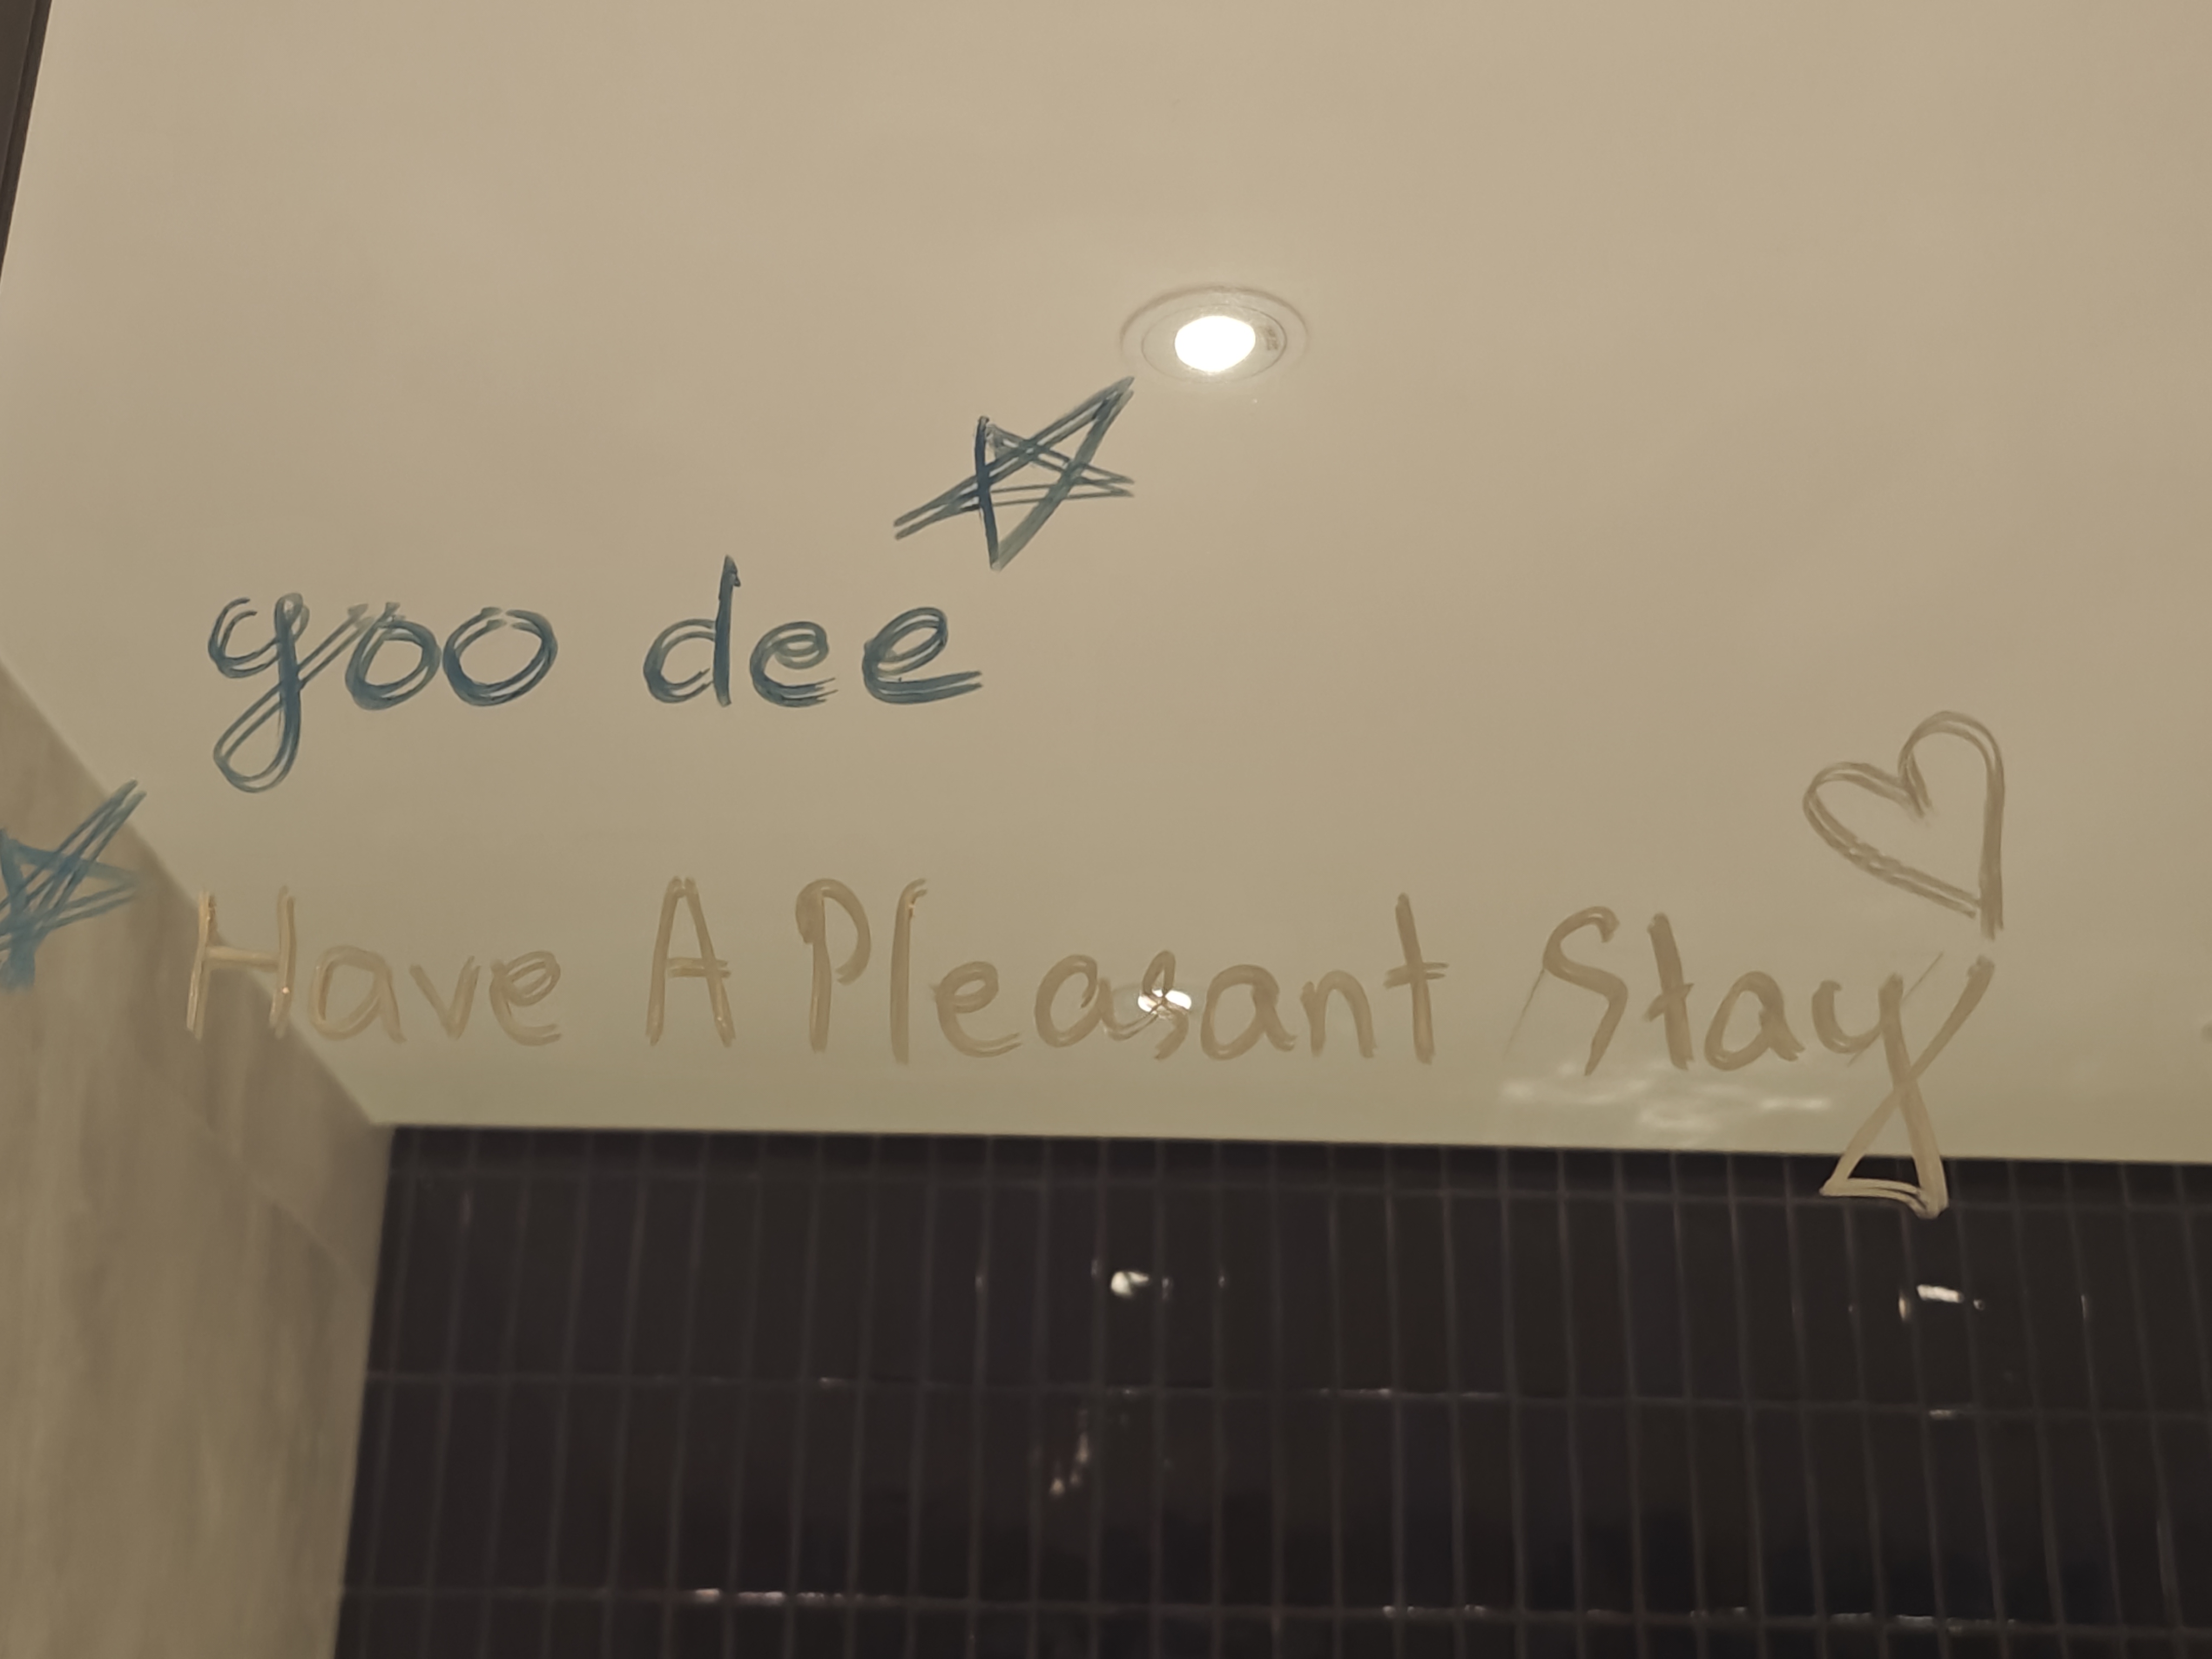 goo dee
Have A Pleasant Stay